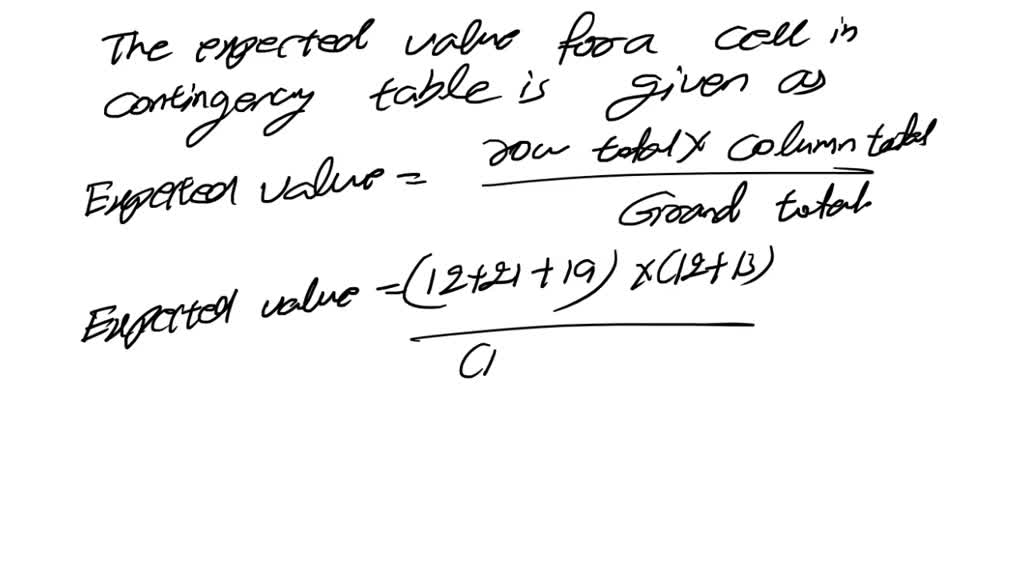 The expected value for a cell in
contingency table is given as
Expected value = row total × column total
Grand total
Expected value = (12+21+19) × (12+13)
(1